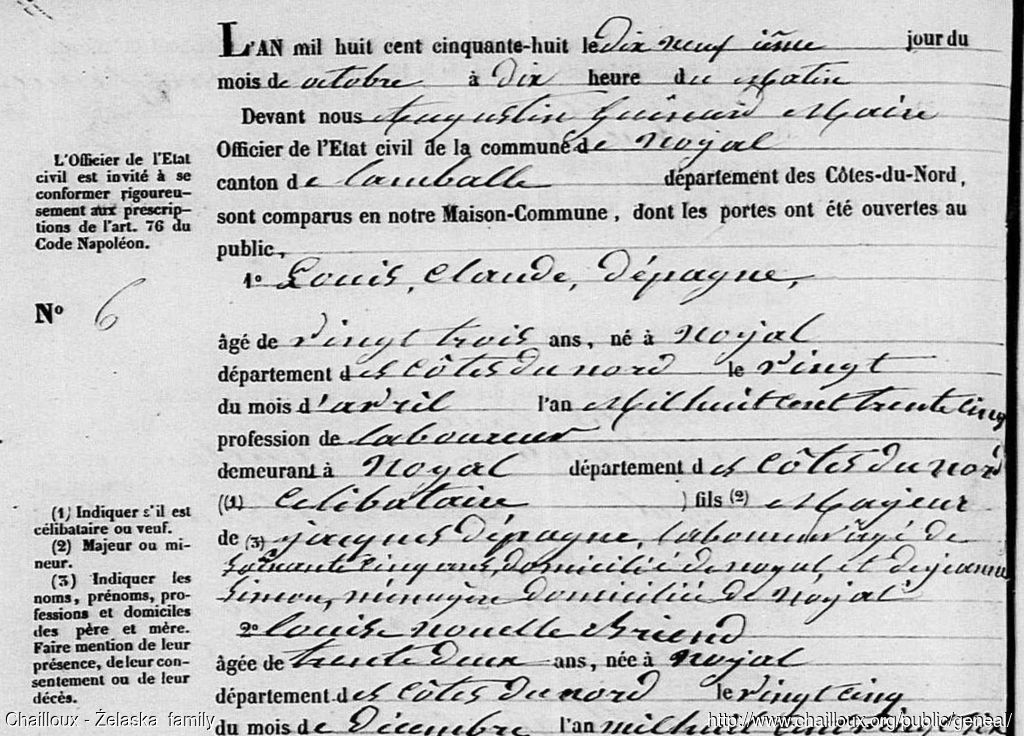 L'AN mil huit cent cinquante-huit le dix neuf ième jour du
mois de octobre à dix heure du Matin
Devant nous Augustin Guinard Maire
Officier de l'Etat civil de la commune de Noyal
canton de Lamballe département des Côtes-du-Nord,
sont comparus en notre Maison-Commune, dont les portes ont été ouvertes au
public,
1º Louis, Claude, Dépagne,
âgé de vingt trois ans, né à Noyal
département des Côtes du nord le vingt
du mois d'avril l'an Mil huit cent trente cinq
profession de laboureur
demeurant à Noyal département des Côtes du nord
(1) Celibataire ) fils (2) Majeur
de (3) jacques Dépagne, laboureur âgé de
soixante cinq ans, domicilié de noyal, et de jeanne
Simon, ménagère domiciliée de Noyal
2º Louise Nouelle Briend
âgée de trente deux ans, née à Noyal
département des Côtes du nord le vingt cinq
du mois de Décembre l'an mil huit cent vingt
L'Officier de l'Etat
civil est invité à se
conformer rigoureu-
sement aux prescrip-
tions de l'art. 76 du
Code Napoléon.
Nº 6
(1) Indiquer s'il est
célibataire ou veuf.
(2) Majeur ou mi-
neur.
(3) Indiquer les
noms, prénoms, pro-
fessions et domiciles
des père et mère.
Faire mention de leur
présence, de leur con-
sentement ou de leur
décès.
Chailloux - Żelaska family
http://www.chailloux.org/public/geneal/